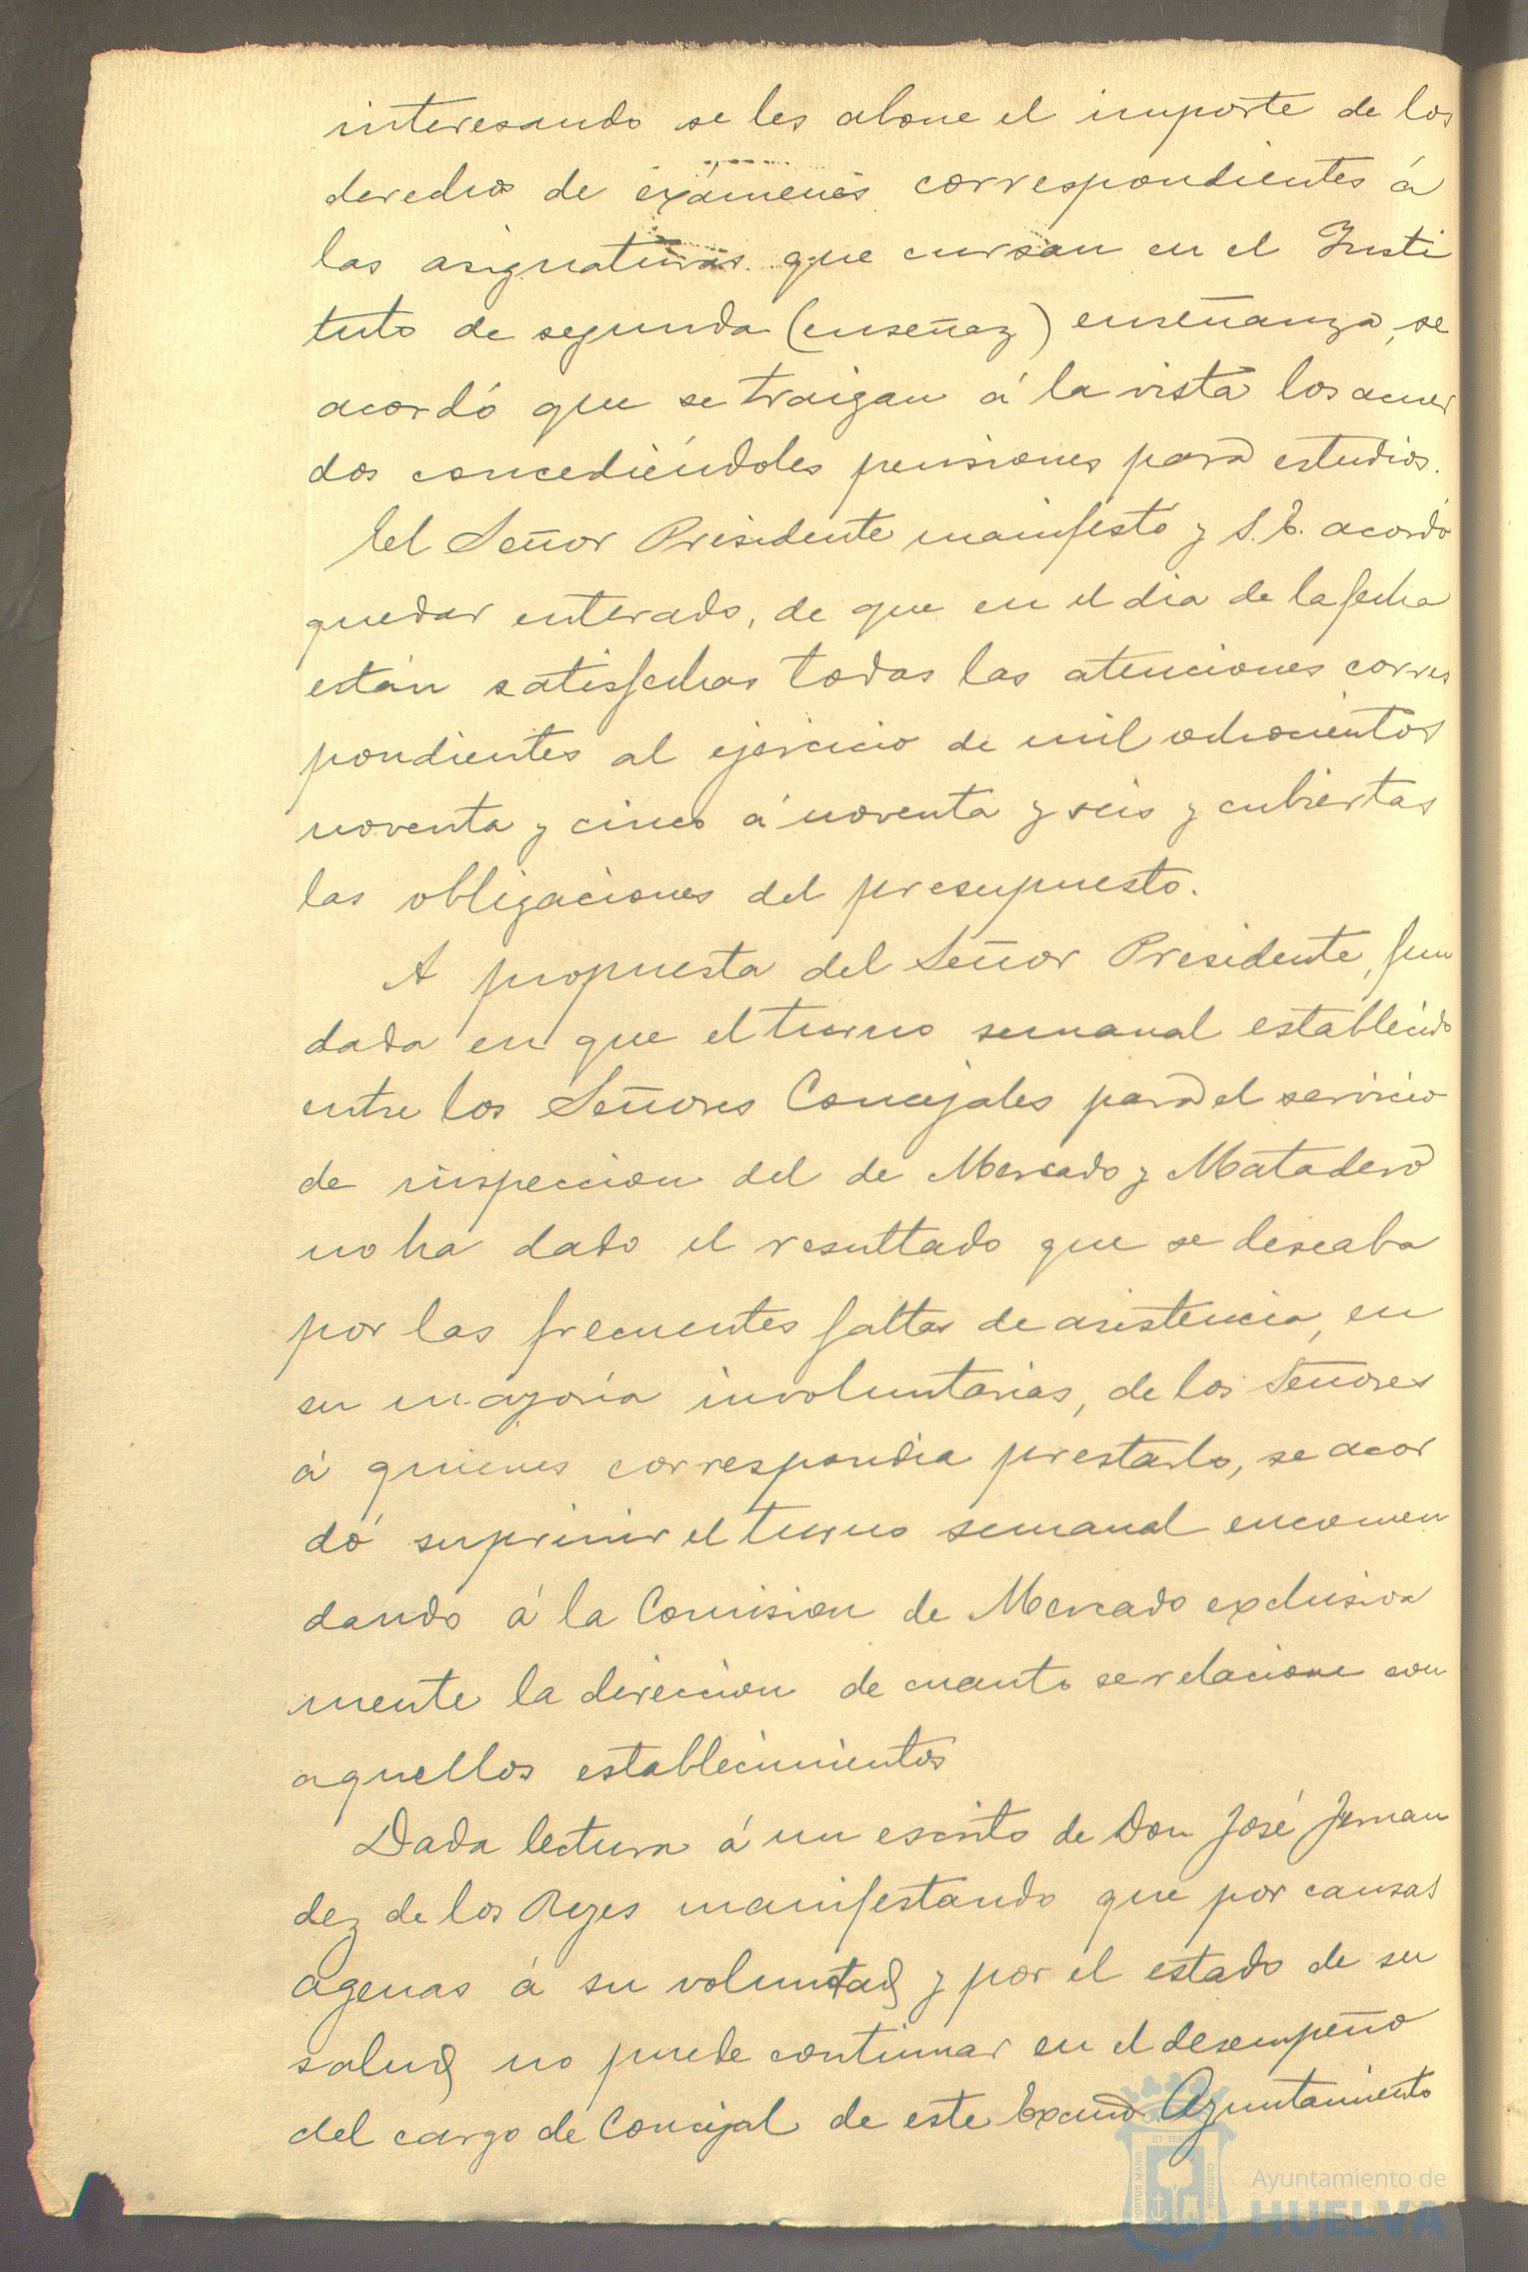 interesando se les abone el importe de los
derechos de exámenes correspondientes á
las asignaturas que cursan en el Insti
tuto de segunda (enseñaz) enseñanza, se
acordó que se traigan á la vista los acuer
dos concediéndoles pensiones para estudios.
El Señor Presidente manifestó y S.E. acordó
quedar enterado, de que en el dia de la fecha
están satisfechas todas las atenciones corres
pondientes al ejercicio de mil ochocientos
noventa y cinco á noventa y seis y cubiertas
las obligaciones del presupuesto.
A propuesta del Señor Presidente, fun
dada en que el turno semanal establecido
entre los Señores Concejales para el servicio
de inspeccion del de Mercado y Matadero
no ha dado el resultado que se deseaba
por las frecuentes faltas de asistencia, en
su mayoría involuntarias, de los Señores
á quienes correspondia prestarlo, se acor
dó suprimir el turno semanal encomen
dando á la Comision de Mercado exclusiva
mente la direccion de cuanto se relacione con
aquellos establecimientos
Dada lectura á un escrito de Don José Fernan
dez de los Reyes manifestando que por causas
agenas á su voluntad y por el estado de su
salud no puede continuar en el desempeño
del cargo de Concejal de este Excmo Ayuntamiento
Ayuntamiento de
HUELVA